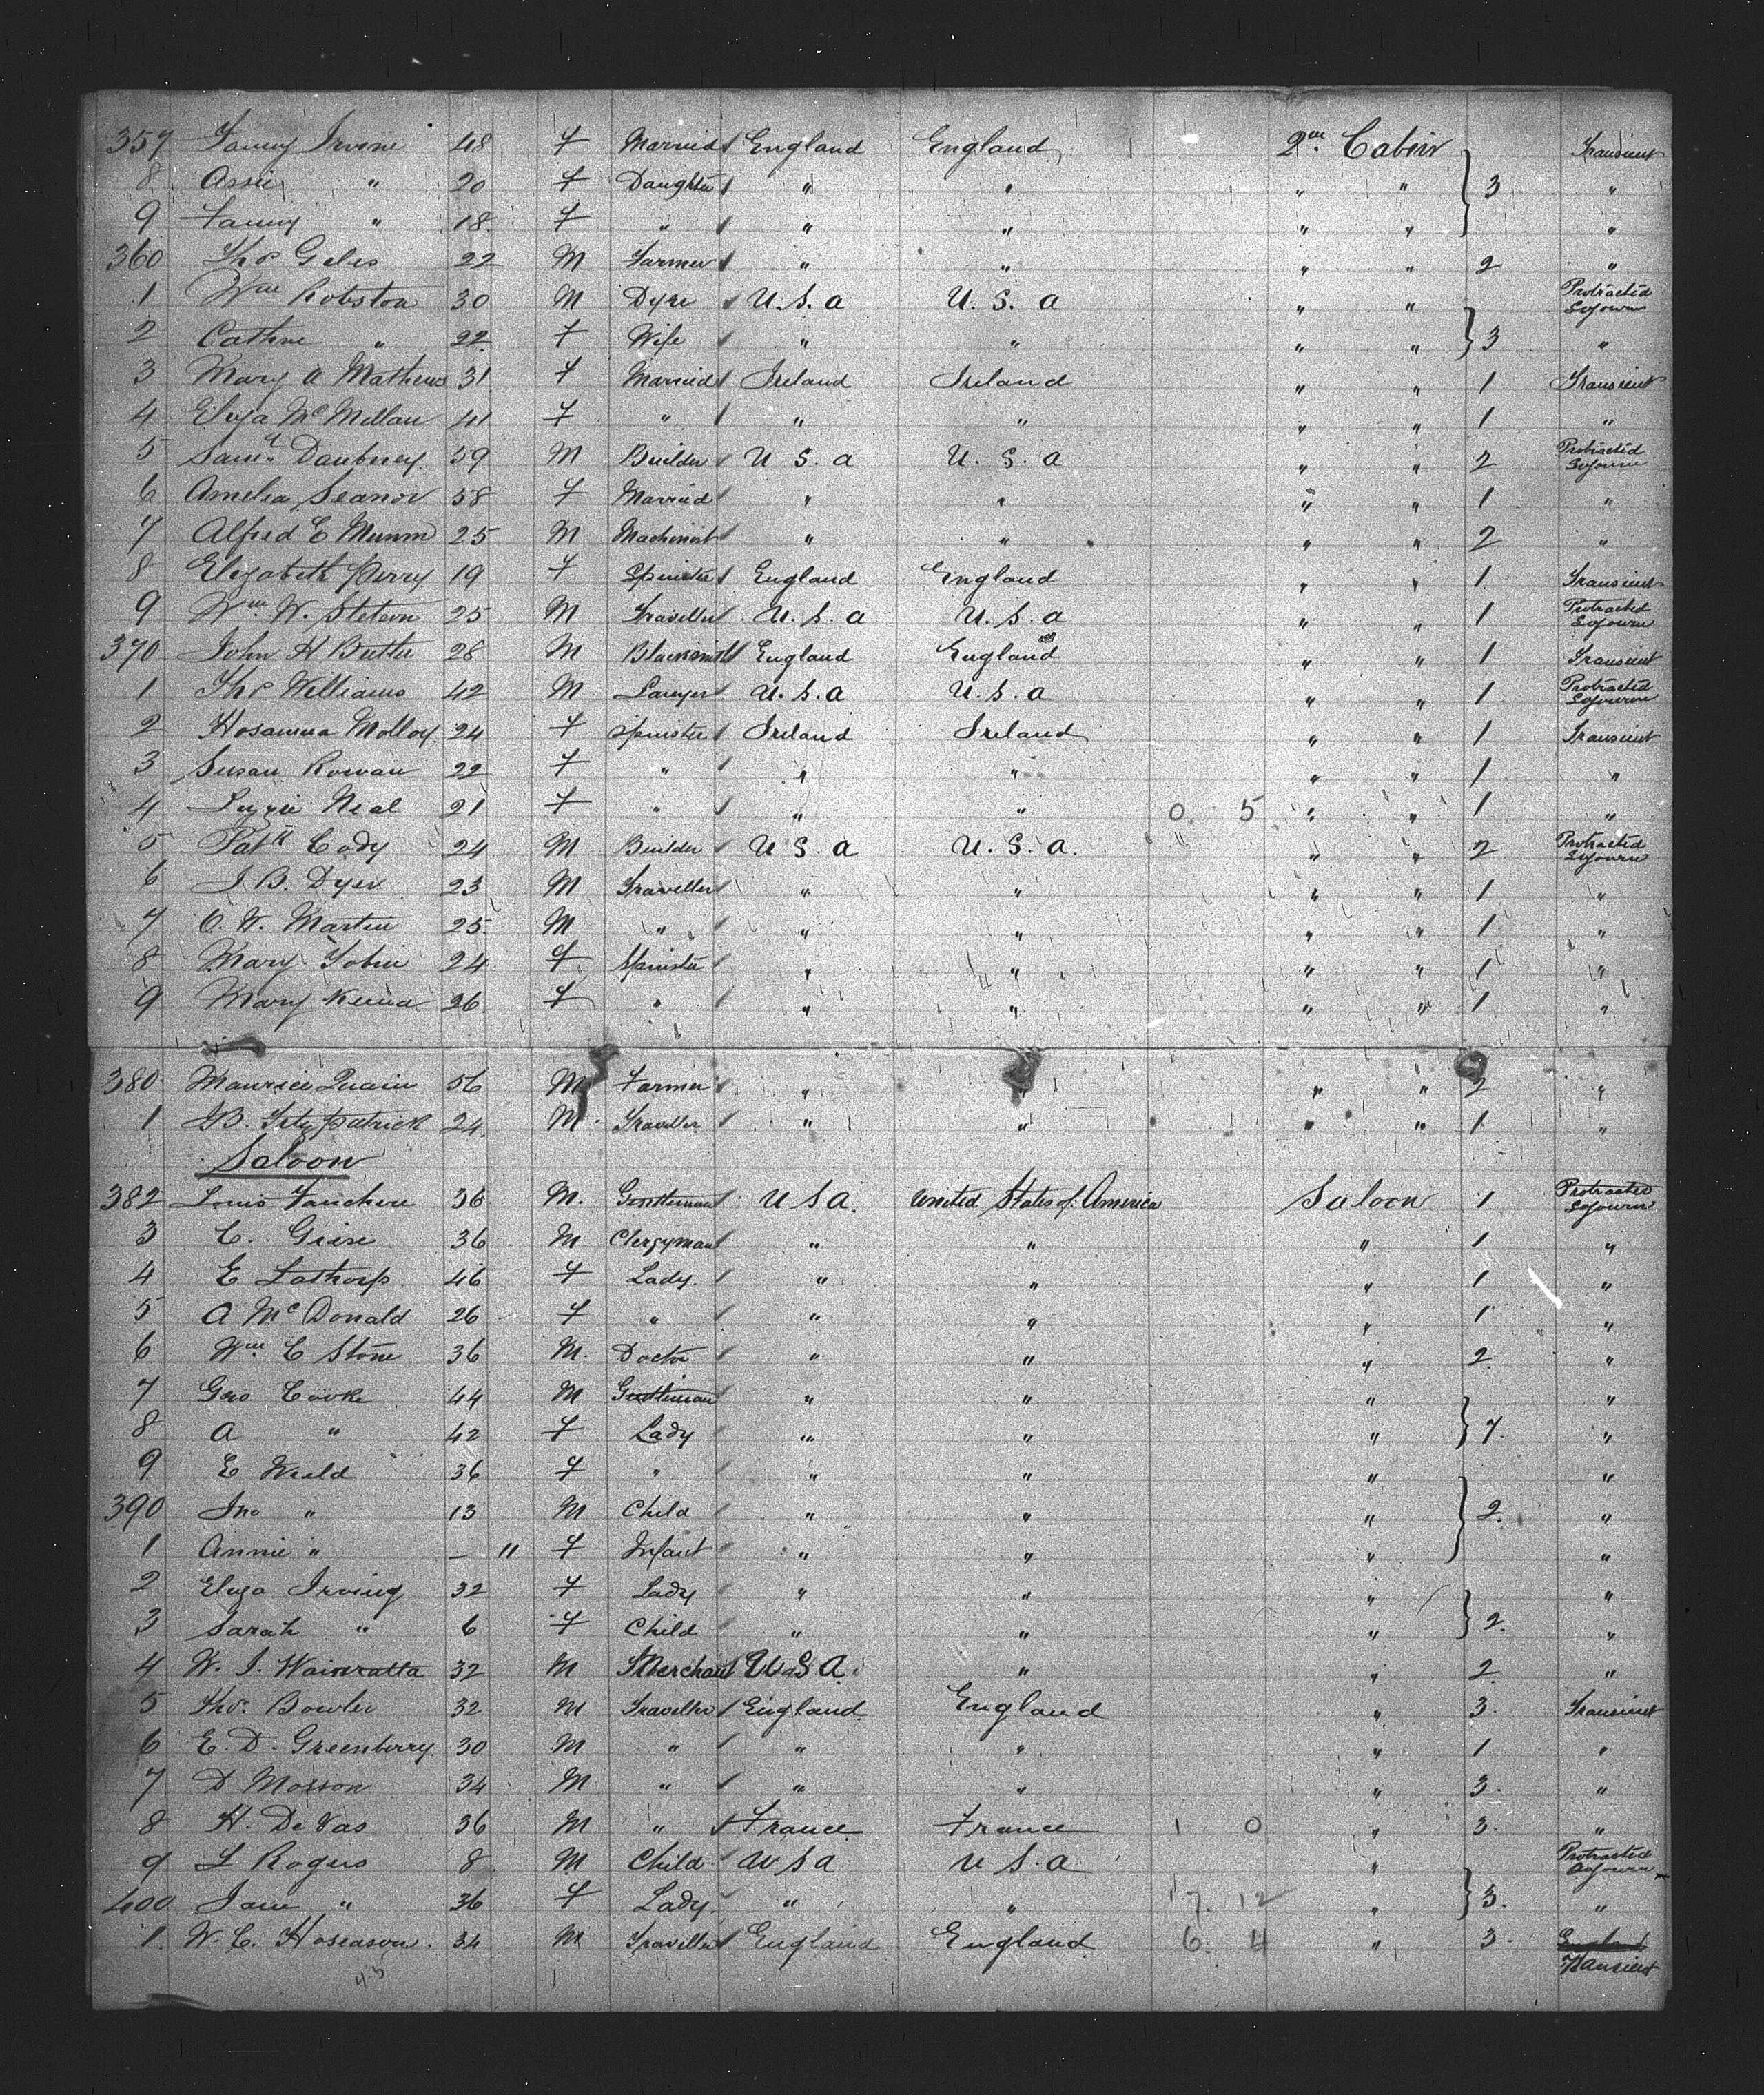 357 Fanny Irvine 48 F Married England England 2nd Cabin Transient
8 Assie " 20 F Daughter " " " " 3 "
9 Fanny " 18 F " " " " " "
360 Thos Geles 22 M Farmer " " " " 2 "
1 Wm Robston 30 M Dyer U.S.a U.S.a " " Protracted Sojourn
2 Cathne " 22 F Wife " " " " 3 "
3 Mary A Mathews 31 F Married Ireland Ireland " " 1 Transient
4 Eliza McMillan 41 F " " " " " 1 "
5 Saml Daubney 59 M Builder U S. a U. S. a " " 2 Protracted Sojourn
6 Amelia Seanor 58 F Married " " " " 1 "
7 Alfred E Munm 25 M Machinist " " " " 2 "
8 Elizabeth Perry 19 F Spinster England England " " 1 Transient
9 Wm W. Stetson 25 M Traveller U.S.a U.S.a " " 1 Protracted Sojourn
370 John H Butler 28 M Blacksmith England England " " 1 Transient
1 Thos Williams 42 M Lawyer U.S.a U.S.a " " 1 Protracted Sojourn
2 Hosanna Molloy 24 F Spinster Ireland Ireland " " 1 Transient
3 Susan Rowan 22 F " " " " " 1 "
4 Lizzie Neal 21 F " " " 0. 5 " " 1 "
5 Patk Cody 24 M Builder U S. a U. S. a. " " " 2 Protracted Sojourn
6 J B. Dyer 23 M Traveller " " " " 1 "
7 O. W. Martin 25 M " " " " " 1 "
8 Mary Tobin 24 F Spinster " " " " 1 "
9 Mary 26 F " " " " " 1 "
380 Maurice Quain 56 M Farmer " " " " 2 "
1 J.B. Fitzpatrick 24 M Traveller " " " " 1 "
Saloon
382 Louis Fauchere 36 M. Gentleman U S a. United States of America Saloon 1 Protracted Sojourn
3 C. Giese 36 M Clergyman " " " 1 "
4 E Lathorp 46 F Lady " " " 1 "
5 A McDonald 26 F " " " " 1 "
6 Wm C Stone 36 M. Doctor " " " 2. "
7 Geo Cooke 44 M Gentleman " " " "
8 A " 42 F Lady " " " 7. "
9 E Weld 36 F " " " " "
390 Jno " 13 M Child " " " 2. "
1 Annie " – 11 F Infant " " " "
2 Eliza Irving 32 F Lady " " " "
3 Sarah " 6 F Child " " " 2. "
4 W. J. Wainratta 32 M Merchant U S A. " " 2 "
5 Thos. Bowler 32 M Traveller England England " 3. Transient
6 E. D. Greenberry 30 M " " " " 1 "
7 D Mosson 34 M " " " " 3. "
8 H. De Vas 36 M " France France 1 0 " 3. "
9 L Rogers 8 M Child U S a U S. a " Protracted Sojourn
400 Jane " 36 F Lady " " 17. 12 " 3. "
1. W. C. Hoseason. 34 M Traveller England England 6. 4 " 3. England Transient
45